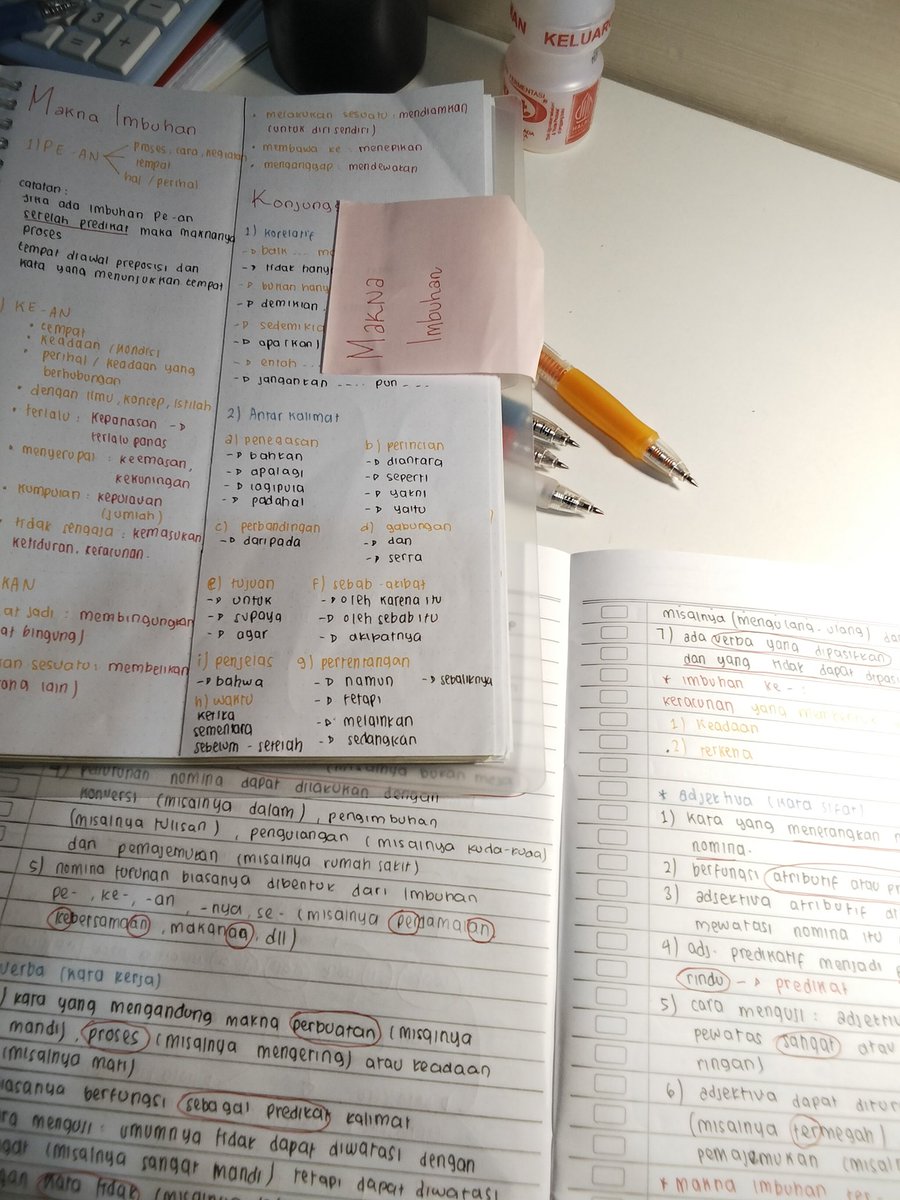 3
KELUARG
FERMENTASI
Makna Imbuhan
1) PE-AN
proses: cara, kegiatan
tempat
hal / perihal
catatan:
Jika ada imbuhan pe-an
setelah predikat maka maknanya
proses
tempat diawal preposisi dan
kata yang menunjukkan tempat
) KE-AN
• tempat
• Keadaan / kondisi
• perihal / keadaan yang
berhubungan
• dengan ilmu, konsep, istilah
• terlalu : kepanasan ->
terlalu panas
• menyerupai : keemasan,
kekuningan
• kumpulan : kepulauan
(jumlah)
• tidak sengaja : kemasukan
ketiduran, keracunan.
KAN
at jadi : membingungkan
at bingung)
an sesuatu : membelikan
rang lain)
• melakukan sesuatu : mendiamkan
(untuk diri sendiri)
• membawa ke : menepikan
• menganggap : mendewakan
Konjung
1) korelatif
-> baik ... ma
-> tidak hany
-> bukan hany
-> demikian
-> sedemikia
-> apa(kan)
-> entah ..
-> jangankan .... pun ...
Makna
Imbuhan
2) Antar kalimat
a) penegasan
-> bahkan
-> apalagi
-> lagipula
-> padahal
b) perincian
-> diantara
-> seperti
-> yakni
-> yaitu
c) perbandingan
-> daripada
d) gabungan
-> dan
-> serta
e) tujuan
-> untuk
-> supaya
-> agar
f) sebab-akibat
-> oleh karena itu
-> oleh sebab itu
-> akibatnya
i) penjelas
-> bahwa
g) pertentangan
-> namun -> sebaliknya
-> tetapi
-> melainkan
-> sedangkan
h) waktu
ketika
sementara
sebelum - setelah
nomina dapat dilakukan dengan
konversi (misalnya dalam), pengimbuhan
(misalnya tulisan), pengulangan (misalnya kuda-kuda)
dan pemajemukan (misalnya rumah sakit)
5) nomina turunan biasanya dibentuk dari imbuhan
pe-, ke-, -an, -nya, se- (misalnya perjamaian
kebersamaan, makanaa, dll)
verba (kata kerja)
) kata yang mengandung makna perbuatan (misalnya
mandi), proses (misalnya mengering) atau keadaan
(misalnya mati)
iasanya berfungsi sebagai predikat kalimat
ra menguji : umumnya tidak dapat diwatasi dengan
ngat (misalnya sangat mandi) tetapi dapat diwatasi
gan kata tidak (misalnya
misalnya (mengulang-ulang) da
7) ada verba yang dipasifkan
dan yang tidak dapat dipasi
* imbuhan ke- :
keracunan yang
1) Keadaan
2) terkena
* adjektiva (kata sifat)
1) kata yang menerangkan n
nomina.
2) berfungsi atributif atau pr
3) adjektiva atributif di
mewatasi nomina itu
4) adj. predikatif menjadi p
rindu -> predikat
5) cara menguji : adjektiv
pewatas sangat atau
ringan)
6) adjektiva dapat ditur
(misalnya termegah)
pemajemukan (misaln
* makna imbuhan ter